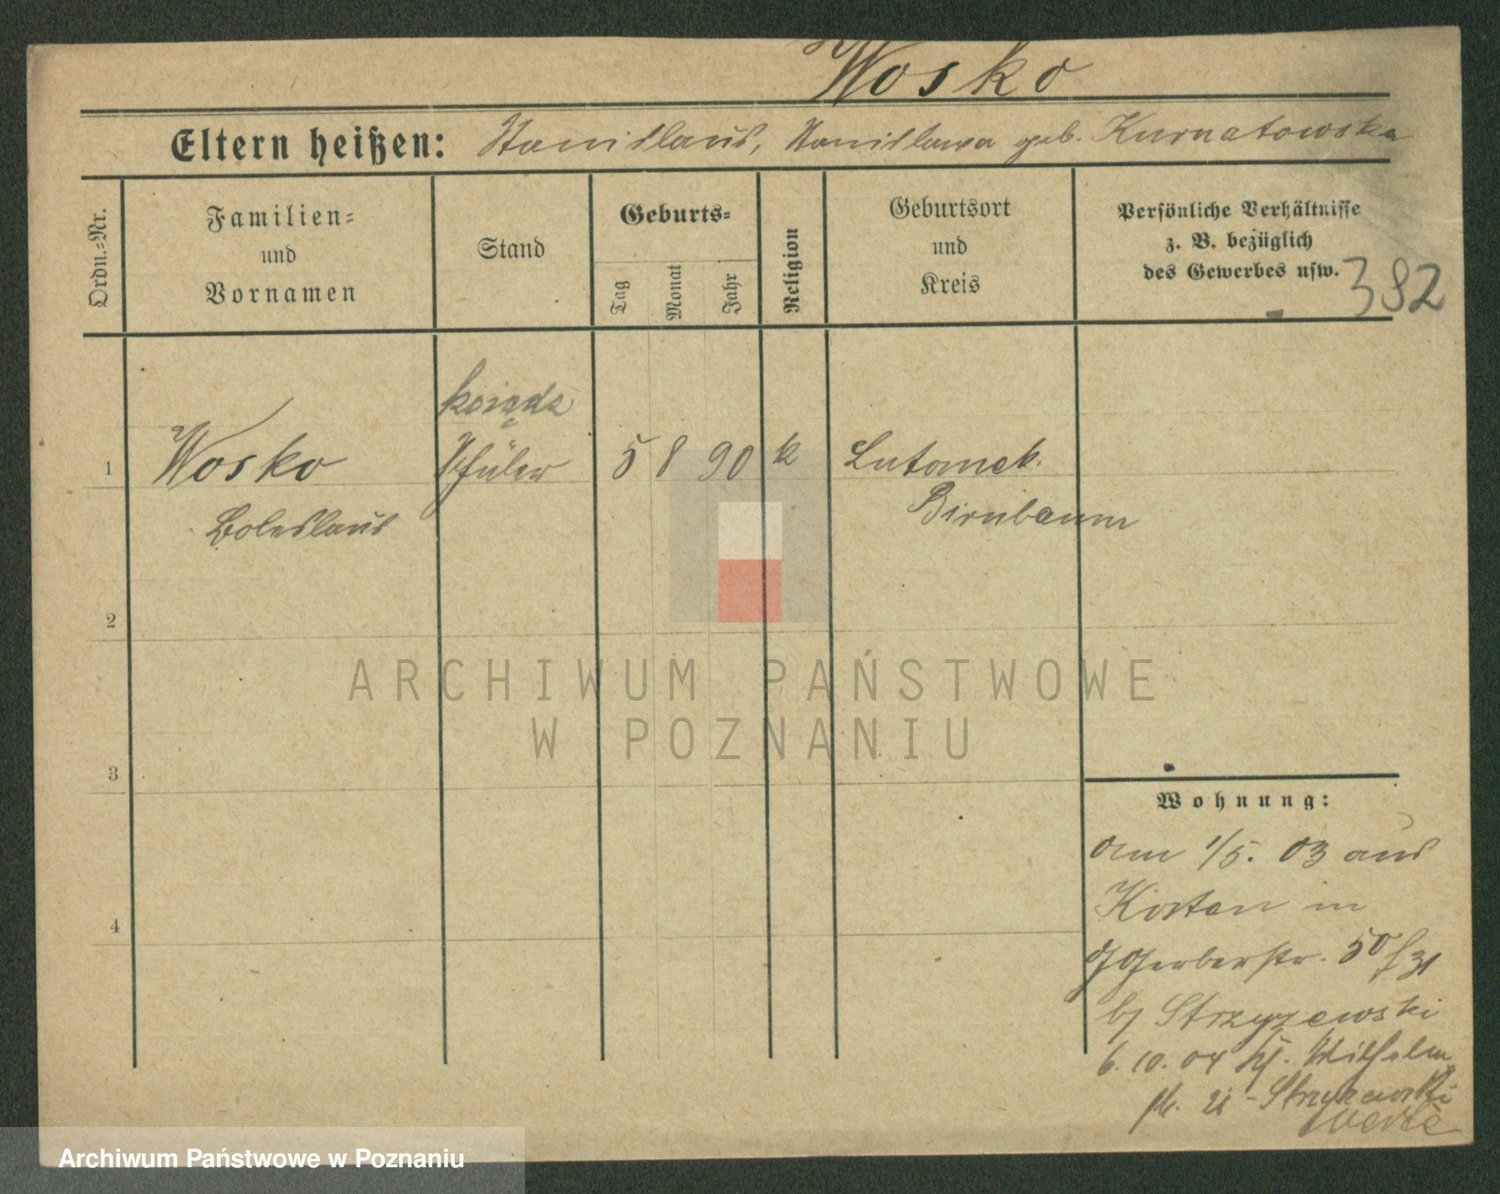 Wosko
Eltern heißen: Stanislaus, Stanislawa geb. Kurnatowska
Ordn.=Nr.
Familien=
und
Vornamen
Stand
Geburts=
Tag
Monat
Jahr
Religion
Geburtsort
und
Kreis
Persönliche Verhältnisse
z. B. bezüglich
des Gewerbes usw.
382
ksiądz
1 Wosko Schüler 5 8 90 k Lutomek
Boleslaus Birnbaum
2
3
4
Wohnung:
am 1/5. 03 aus
Kosten in
Gerberstr. 50
bj Strzyzewski
6. 10. 04 Wilhelm
Strzyzewski
verte
ARCHIWUM PAŃSTWOWE
W POZNANIU
Archiwum Państwowe w Poznaniu